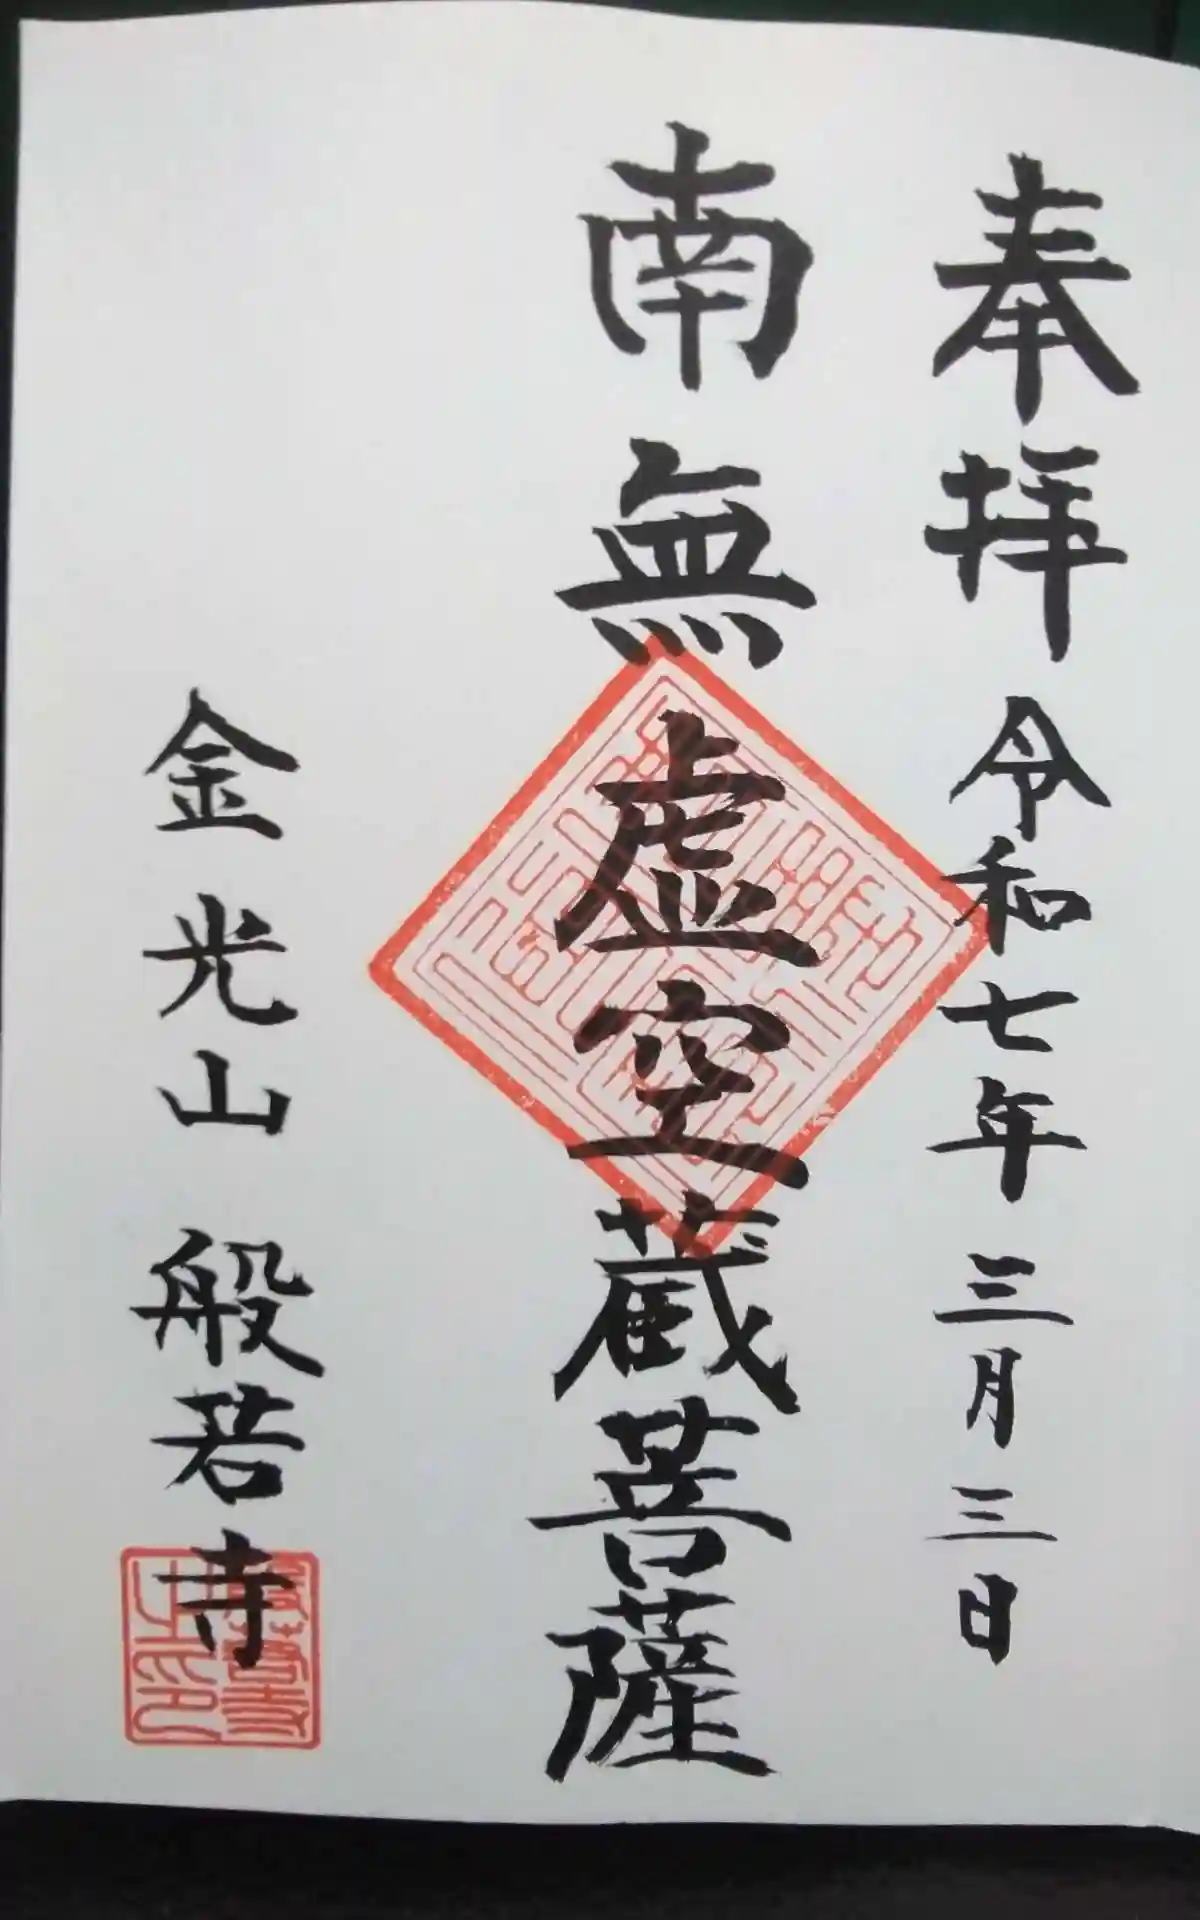 奉拝 令和七年 三月三日
南無虚空蔵菩薩
金光山 般若寺